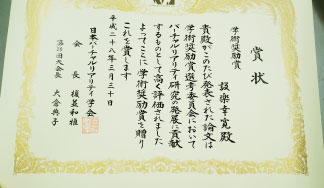 賞状
学術奨励賞
設楽幸寛殿
貴殿がこのたび発表された論文は
学術奨励賞選考委員会において
バーチャルリアリティ研究の発展に貢献
するものとして高く評価されました
よってここに学術奨励賞を贈り
これを賞します
平成二十八年三月三十日
日本バーチャルリアリティ学会
会長
大会長